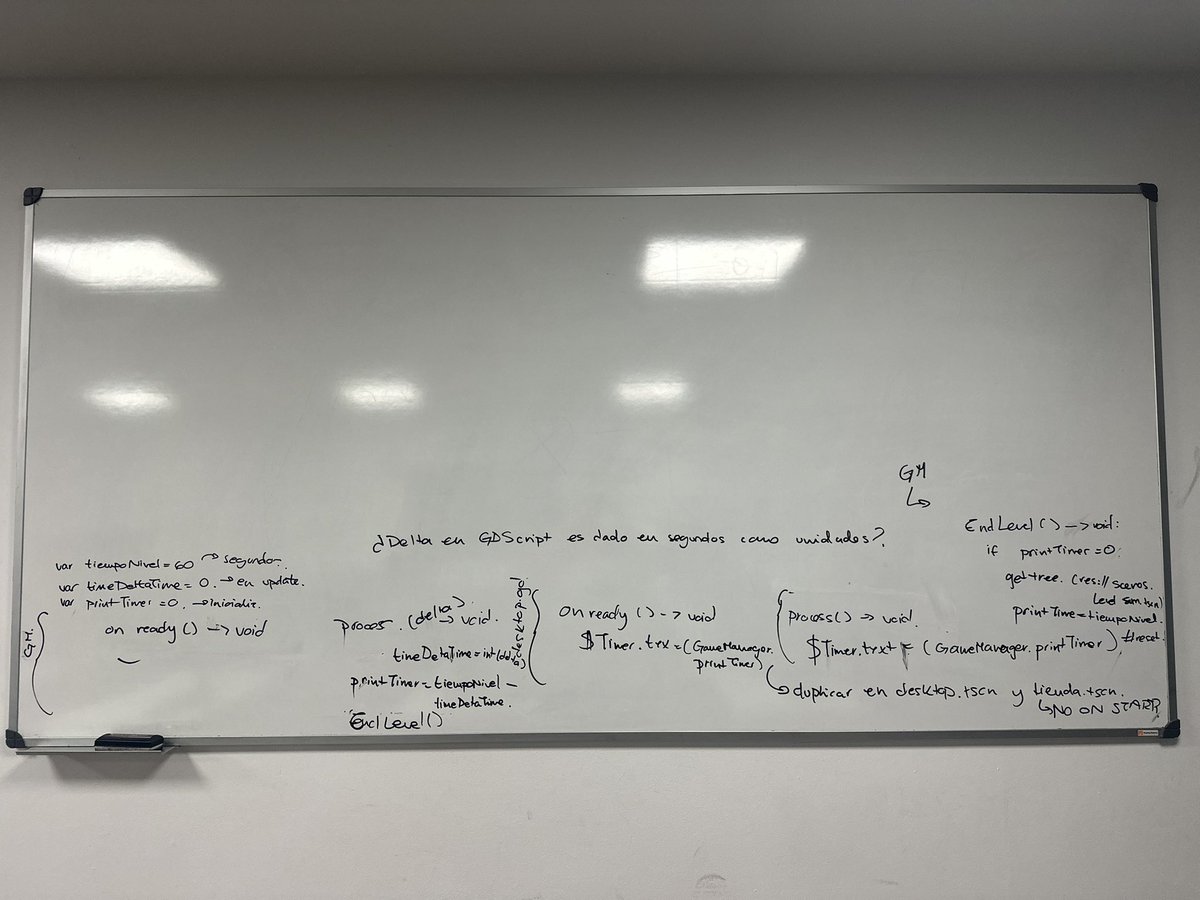 GM
¿Delta en GDScript es dado en segundos como unidades?
var tiempoNivel = 60 → segundos.
var timeDeltaTime = 0. → en update.
var printTimer = 0. → Inicializ.
G.M.
on ready () → void
proces. (delta) → void.
timeDetaTime = int(
printTimer = tiempoNivel -
timeDetaTime.
EndLevel()
desktop.gd
on ready () → void
$Timer.txx = (GameManager.
printTimer)
process () → void.
$Timer.txt = (GameManager.printTimer)
↳ duplicar en desktop.tscn y tienda.tscn.
↳ NO ON START
EndLevel () → void:
if printTimer = 0:
get tree. (res://
printTime = tiempoNivel.
#reset.